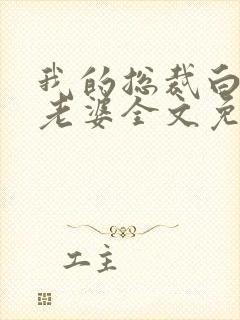 我的总裁白
老婆全文免
工主